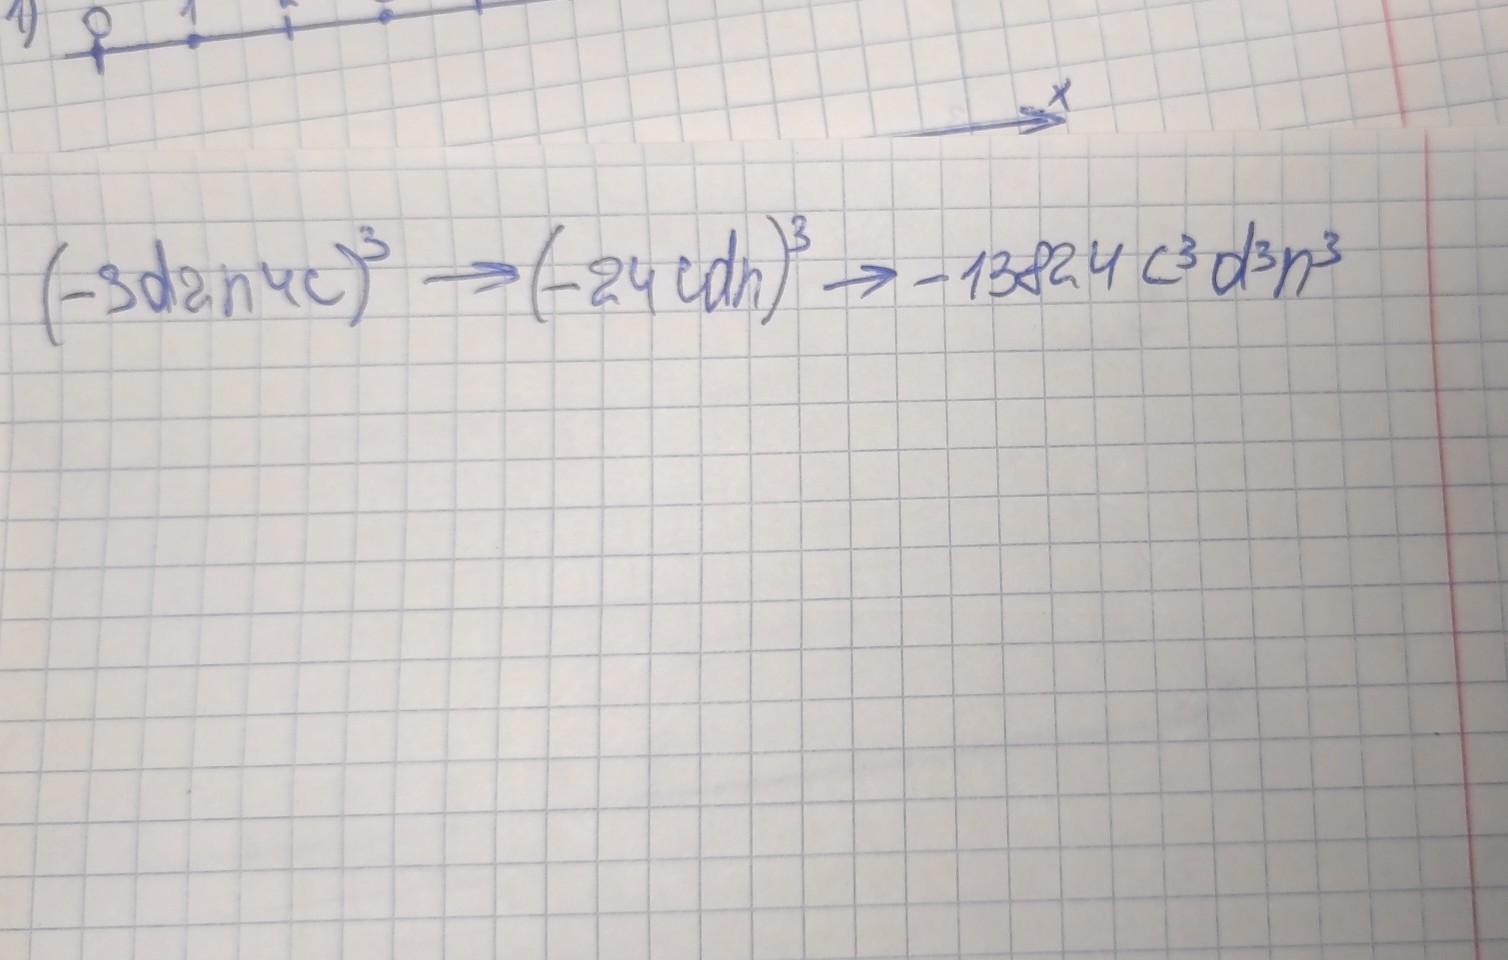 1) 0 1
x
(-3d2n4c)³ → (-24cdn)³ → -13824c³d³n³